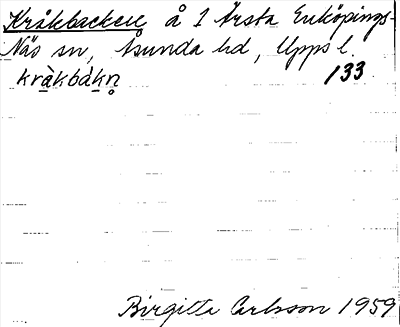 Kråkbacken å 1 Årsta Enköpings-
Näs sn, Åsunda hd, Upps l.
kràkbàkn̥ 133
Birgitta Carlsson 1959